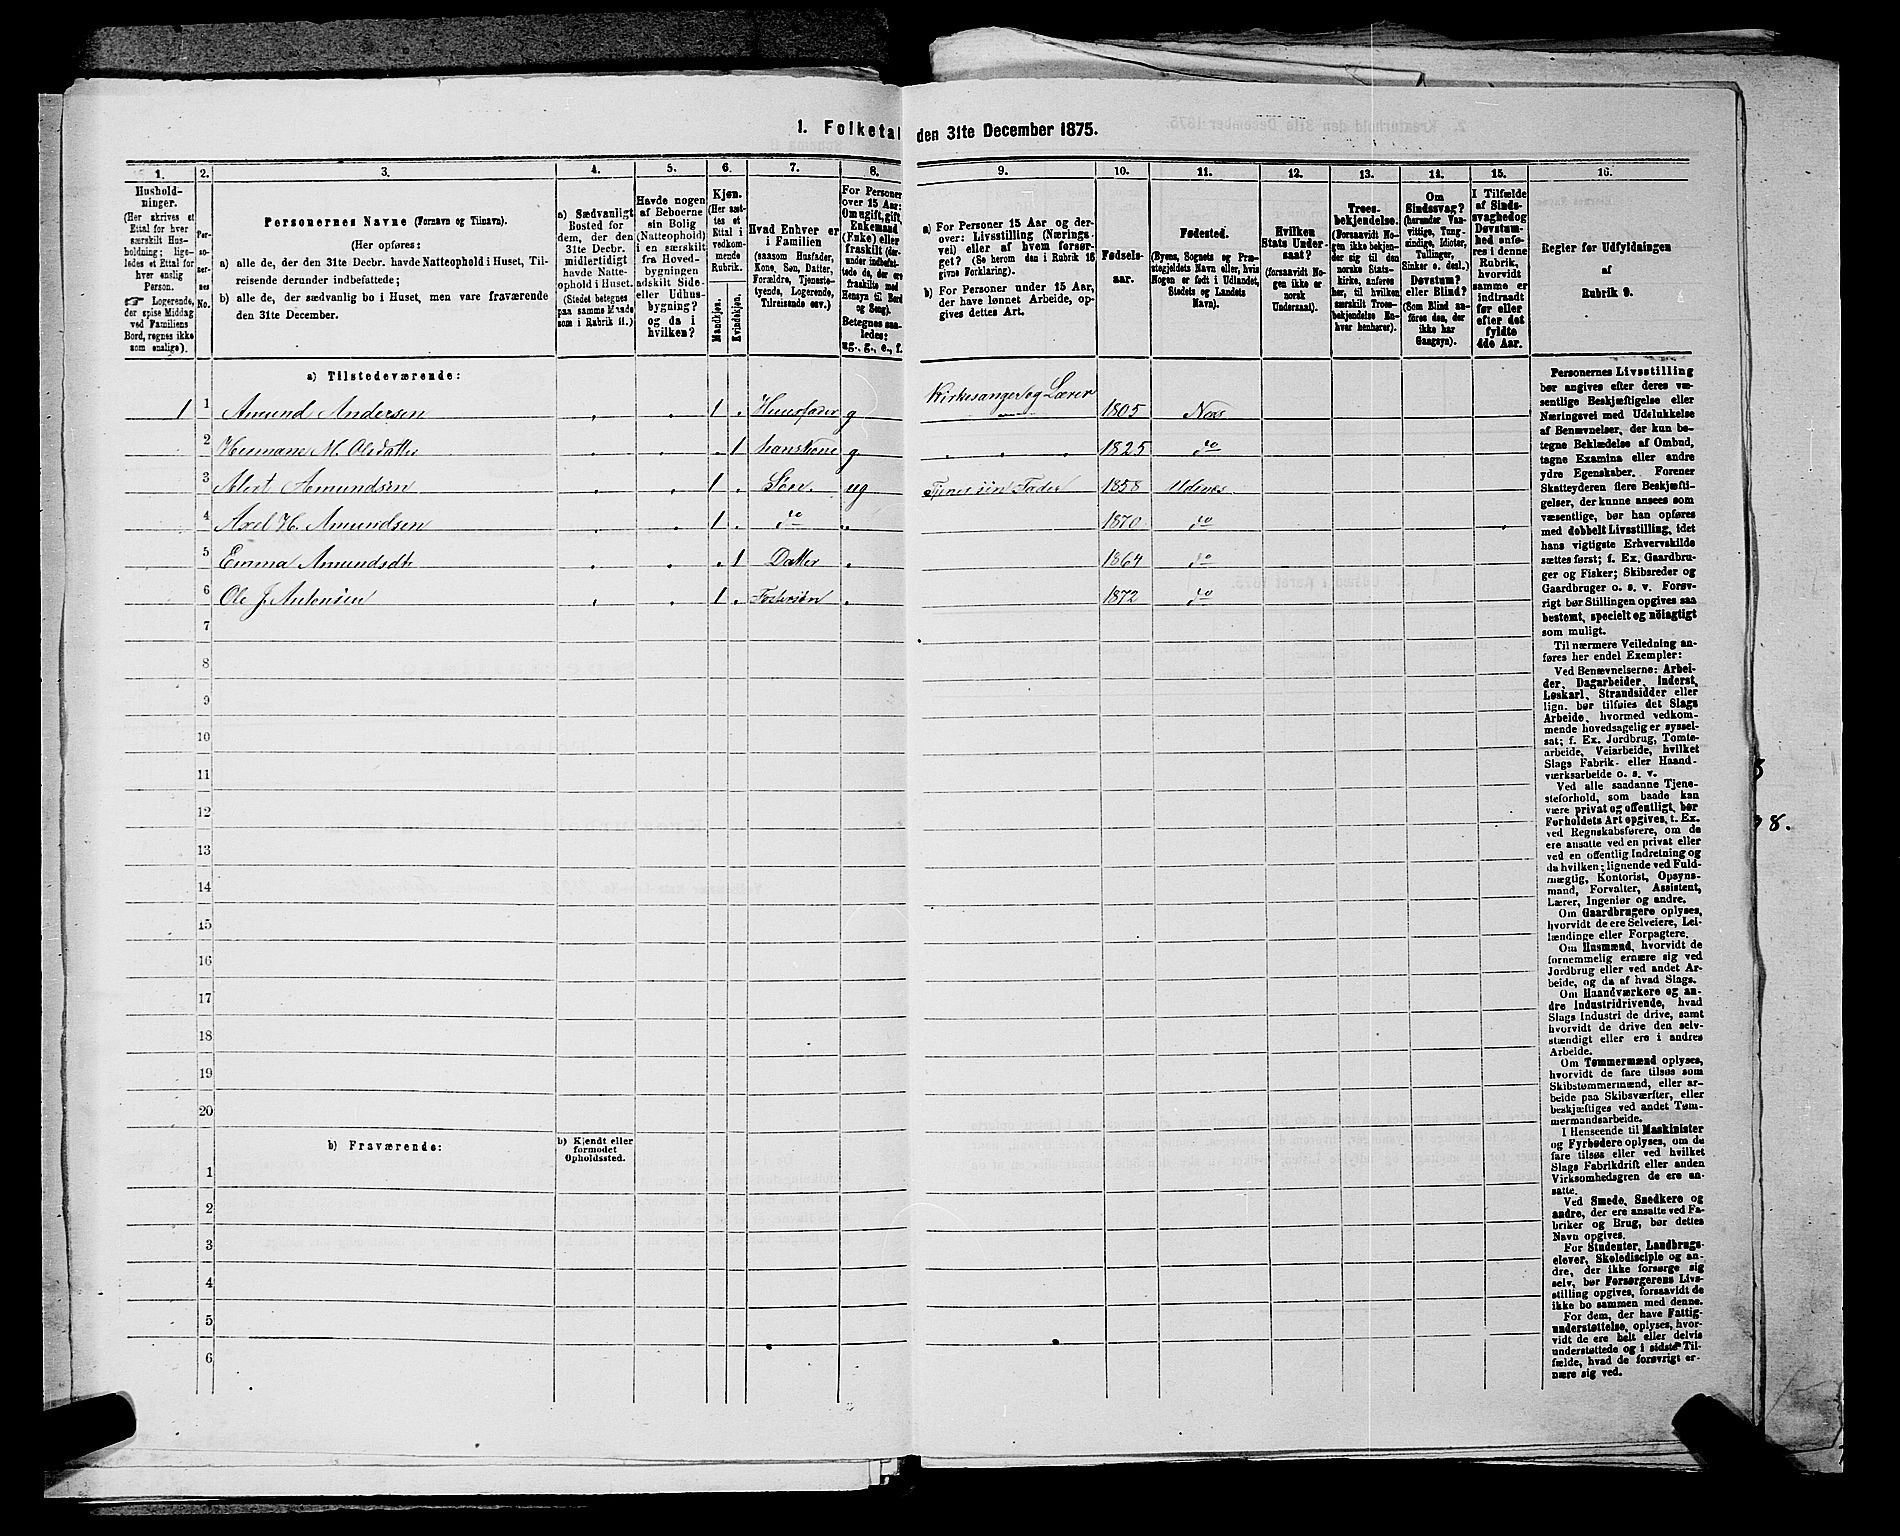 1. Folketal den 31te December 1875.
1.
Hushold-
ninger.
(Her skrives et
Ettal for hver
særskilt Hus-
holdning; lige-
ledes et Ettal for
hver enslig
Person.
☞ Logerende,
der spise Middag
ved Familiens
Bord, regnes ikke
som enslige).
2.
Per-
so-
ner-
nes
No.
3.
Personernes Navne (Fornavn og Tilnavn).
(Her opføres:
a) alle de, der den 31te Decbr. havde Natteophold i Huset, Til-
reisende derunder indbefattede;
b) alle de, der sædvanlig bo i Huset, men vare fraværende
den 31te December.
4.
a) Sædvanligt
Bosted for
dem, der den
31te Decbr.
midlertidigt
havde Natte-
ophold i Huset.
(Stedet betegnes
paa samme Maade
som i Rubrik 11.)
5.
Havde nogen
af Beboerne
sin Bolig
(Natteophold)
i en særskilt
fra Hoved-
bygningen
adskilt Side-
eller Udhus-
bygning?
og da i
hvilken?
6.
Kjøn.
(Her sæt-
tes et
Ettal i
vedkom-
mende
Rubrik.
Mandkjøn.
Kvindekjøn.
7.
Hvad Enhver er
i Familien
(saasom Husfader,
Kone, Søn, Datter,
Forældre, Tjeneste-
tyende, Logerende,
Tilreisende osv.)
8.
For Personer
over 15 Aar:
Om ugift, gift,
Enkemand
(Enke) eller
fraskilt (der-
under indbefat-
tede de, der ere
fraskilte med
Hensyn til Bord
og Seng).
Betegnes saa-
ledes:
ug., g., e., f.
9.
a) For Personer 15 Aar og der-
over: Livsstilling (Nærings-
vei) eller af hvem forsør-
get? (Se herom den i Rubrik 16
givne Forklaring).
b) For Personer under 15 Aar,
der have lønnet Arbeide, op-
gives dettes Art.
10.
Fødsels-
aar.
11.
Fødested.
(Byens, Sognets og Præ-
stegjeldets Navn eller, hvis
Nogen er født i Udlandet,
Stedets og Landets
Navn).
12.
Hvilken
Stats Under-
saat?
(forsaavidt No-
gen ikke er
norsk
Undersaat).
13.
Troes-
bekjendelse.
(Forsaavidt No-
gen ikke bekjen-
der sig til den
norske Stats-
kirke, anføres
her, til hvilken
særskilt Troes-
bekjendelse En-
hver henhører).
14.
Om
Sindssvag?
(herunder Van-
vittige, Tung-
sindige, Idioter,
Tullinger,
Sinker o. desl.)
Døvstum?
eller Blind?
(Som Blind an-
føres den, der
ikke har
Gangsyn).
15.
I Tilfælde
af Sinds-
svaghed og
Døvstum-
hed anfø-
res i denne
Rubrik,
hvorvidt
samme er
indtraadt
før eller
efter det
fyldte
4de Aar.
16.
Regler for Udfyldningen
af
Rubrik 9.
a) Tilstedeværende:
1 1 Amund Andersen 1 Huusfader g Kirkesanger og Lærer 1805 Næs
2 M. Olsdatter 1 hans Kone g 1825 do
3 Amundsen 1 Søn ug Tjener sin Fader 1858
4 Axel H. Amundsen 1 do 1870 do
5 Emma Amundsdt 1 Datter 1864 do
6 Ole J. Antonsen 1 Fostersøn 1872 do
7
8
9
10
11
12
13
14
15
16
17
18
19
20
b) Fraværende:
b) Kjendt eller
formodet
Opholdssted.
1
2
3
4
5
6
Personernes Livsstilling
bør angives efter deres væ-
sentlige Beskjæftigelse eller
Næringsvei med Udelukkelse
af Benævnelser, der kun be-
tegne Beklædelse af Ombud,
tagne Examina eller andre
ydre Egenskaber. Forener
Skatteyderen flere Beskjæfti-
gelser, der kunne ansees som
væsentlige, bør han opføres
med dobbelt Livsstilling, idet
hans vigtigste Erhvervskilde
sættes først; f. Ex. Gaardbru-
ger og Fisker; Skibsreder og
Gaardbruger o. s. v. Forøv-
rigt bør Stillingen opgives saa
bestemt, specielt og nöiagtigt
som muligt.
Til nærmere Veiledning an-
føres her endel Exempler:
Ved Benævnelserne: Arbei-
der, Dagarbeider, Inderst,
Løskarl, Strandsidder eller
lign. bør tilføies det Slags
Arbeide, hvormed vedkom-
mende hovedsagelig er syssel-
sat; f. Ex. Jordbrug, Tomte-
arbeide, Veiarbeide, hvilket
Slags Fabrik- eller Haand-
værksarbeide o. s. v.
Ved alle saadanne Tjene-
steforhold, som baade kan
være privat og offentligt, bør
Forholdets Art opgives, t. Ex.
ved Regnskabsførere, om de
ere ansatte ved en privat eller
ved en offentlig Indretning og
da hvilken; lignende ved Fuld-
mægtig, Kontorist, Opsyns-
mand, Forvalter, Assistent,
Lærer, Ingeniør og andre.
Om Gaardbrugere oplyses,
hvorvidt de ere Selveiere, Lei-
lændinge eller Forpagtere.
Om Husmænd, hvorvidt de
fornemmelig ernære sig ved
Jordbrug eller ved andet Ar-
beide, og da af hvad Slags.
Om Haandværkere og an-
dre Industridrivende, hvad
Slags Industri de drive, samt
hvorvidt de drive den selv-
stændigt eller ere i andres
Arbeide.
Om Tømmermænd oplyses,
hvorvidt de fare tilsøs som
Skibstømmermænd, eller ar-
beide paa Skibsværfter, eller
beskjæftiges ved andet Tøm-
mermandsarbeide.
I Henseende til Maskinister
og Fyrbødere oplyses, om de
fare tilsøs eller ved hvilket
Slags Fabrikdrift eller anden
Virksomhedsgren de ere an-
satte.
Ved Smede, Snedkere og
andre, der ere ansatte ved Fa-
briker og Brug, bør dettes
Navn opgives.
For Studenter, Landbrugs-
elever, Skoledisciple og an-
dre, der ikke forsørge sig
selv, bør Forsørgerens Livs-
stilling opgives, forsaavidt de
ikke bo sammen med denne.
For dem, der have Fattig-
understøttelse, oplyses, hvor-
vidt de ere helt eller delvis
understøttede og i sidste Til-
fælde, hvad de forøvrigt er-
nære sig ved.
8.